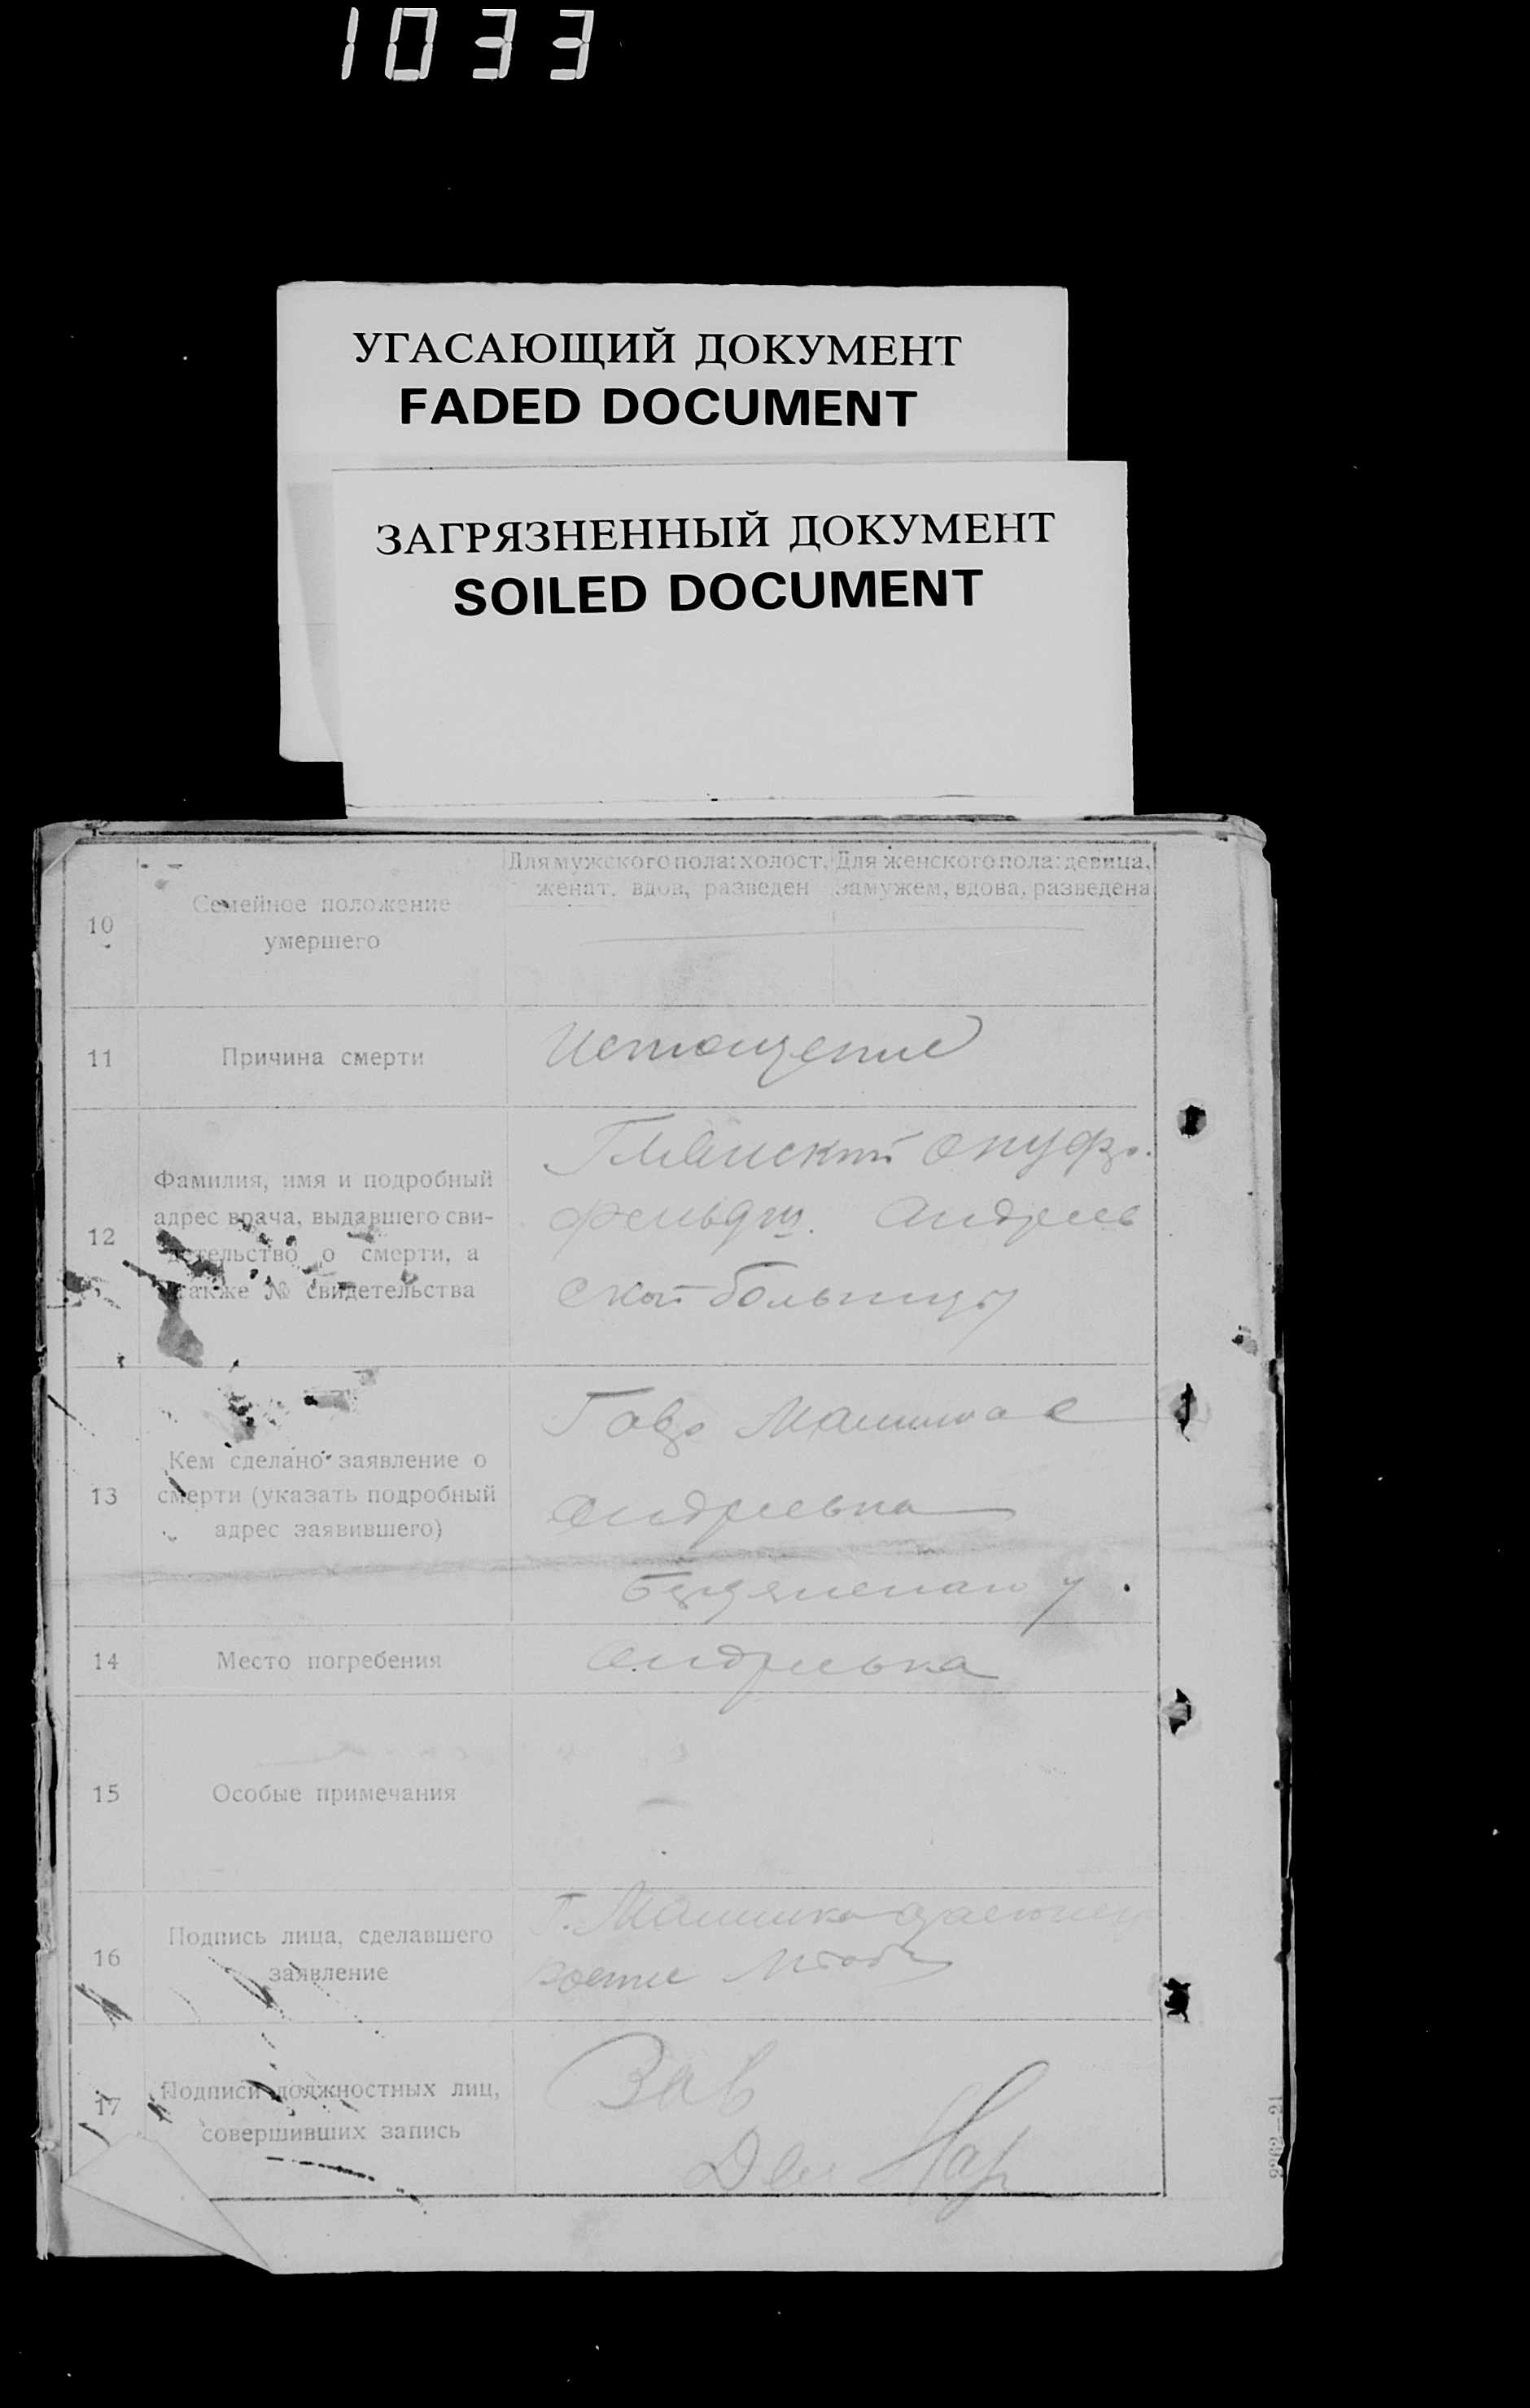 1033
УГАСАЮЩИЙ ДОКУМЕНТ
FADED DOCUMENT
ЗАГРЯЗНЕННЫЙ ДОКУМЕНТ
SOILED DOCUMENT
10
Семейное положение
умершего
Для мужского пола: холост,
женат, вдов, разведен
Для женского пола: девица,
замужем, вдова, разведена
11
Причина смерти
Истощение
12
Фамилия, имя и подробный
адрес врача, выдавшего сви-
детельство о смерти, а
также № свидетельства
фельдш. Андреев
ской больницы
13
Кем сделано заявление о
смерти (указать подробный
адрес заявившего)
Андреевка
14
Место погребения
Андреевка
15
Особые примечания
—
16
Подпись лица, сделавшего
заявление
17
Подписи должностных лиц,
совершивших запись
Зав